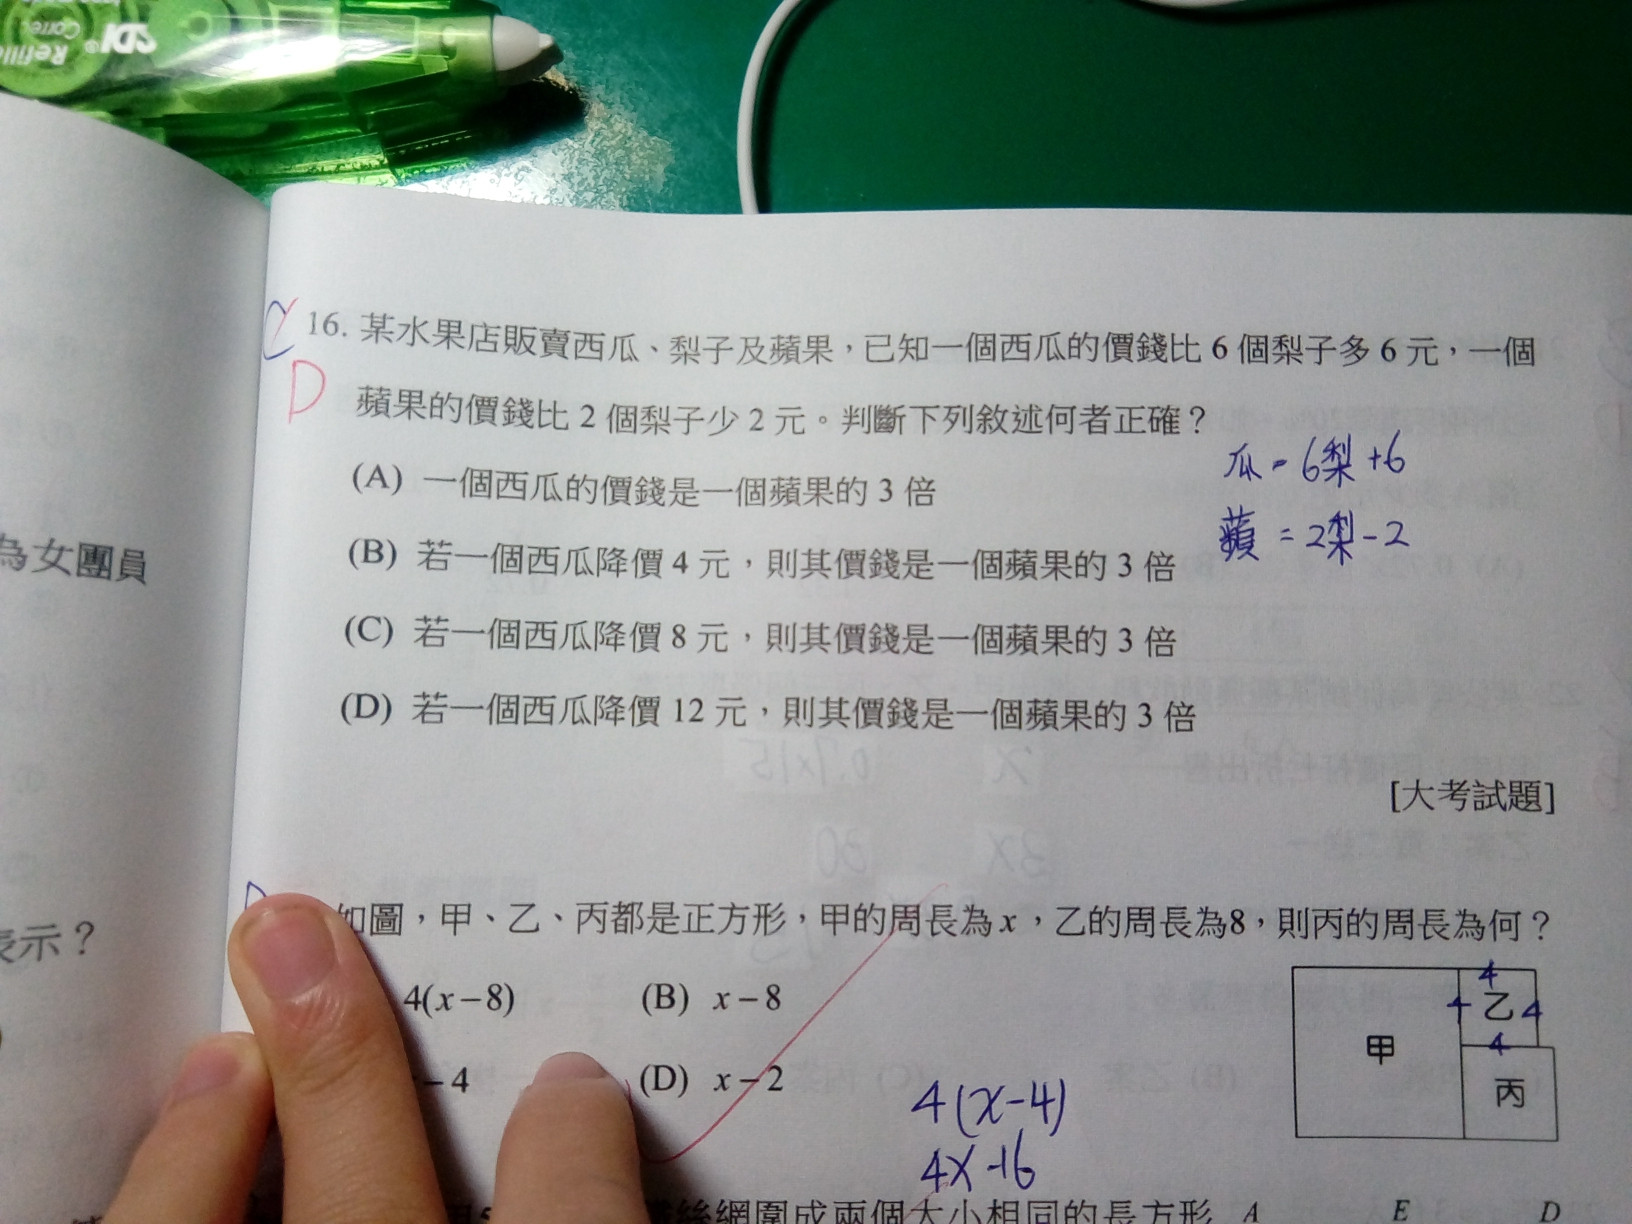 SDI
Corre
Refill
C
D
16. 某水果店販賣西瓜、梨子及蘋果，已知一個西瓜的價錢比 6 個梨子多 6 元，一個
蘋果的價錢比 2 個梨子少 2 元。判斷下列敘述何者正確？
瓜 = 6梨 +6
蘋 = 2梨 - 2
(A) 一個西瓜的價錢是一個蘋果的 3 倍
(B) 若一個西瓜降價 4 元，則其價錢是一個蘋果的 3 倍
(C) 若一個西瓜降價 8 元，則其價錢是一個蘋果的 3 倍
(D) 若一個西瓜降價 12 元，則其價錢是一個蘋果的 3 倍
[大考試題]
為女團員
表示？
如圖，甲、乙、丙都是正方形，甲的周長為 x，乙的周長為8，則丙的周長為何？
4(x－8)
(B) x－8
－4
(D) x－2
甲
4
4 乙 4
4
丙
4(x-4)
4x-16
絲網圍成兩個大小相同的長方形
A E D